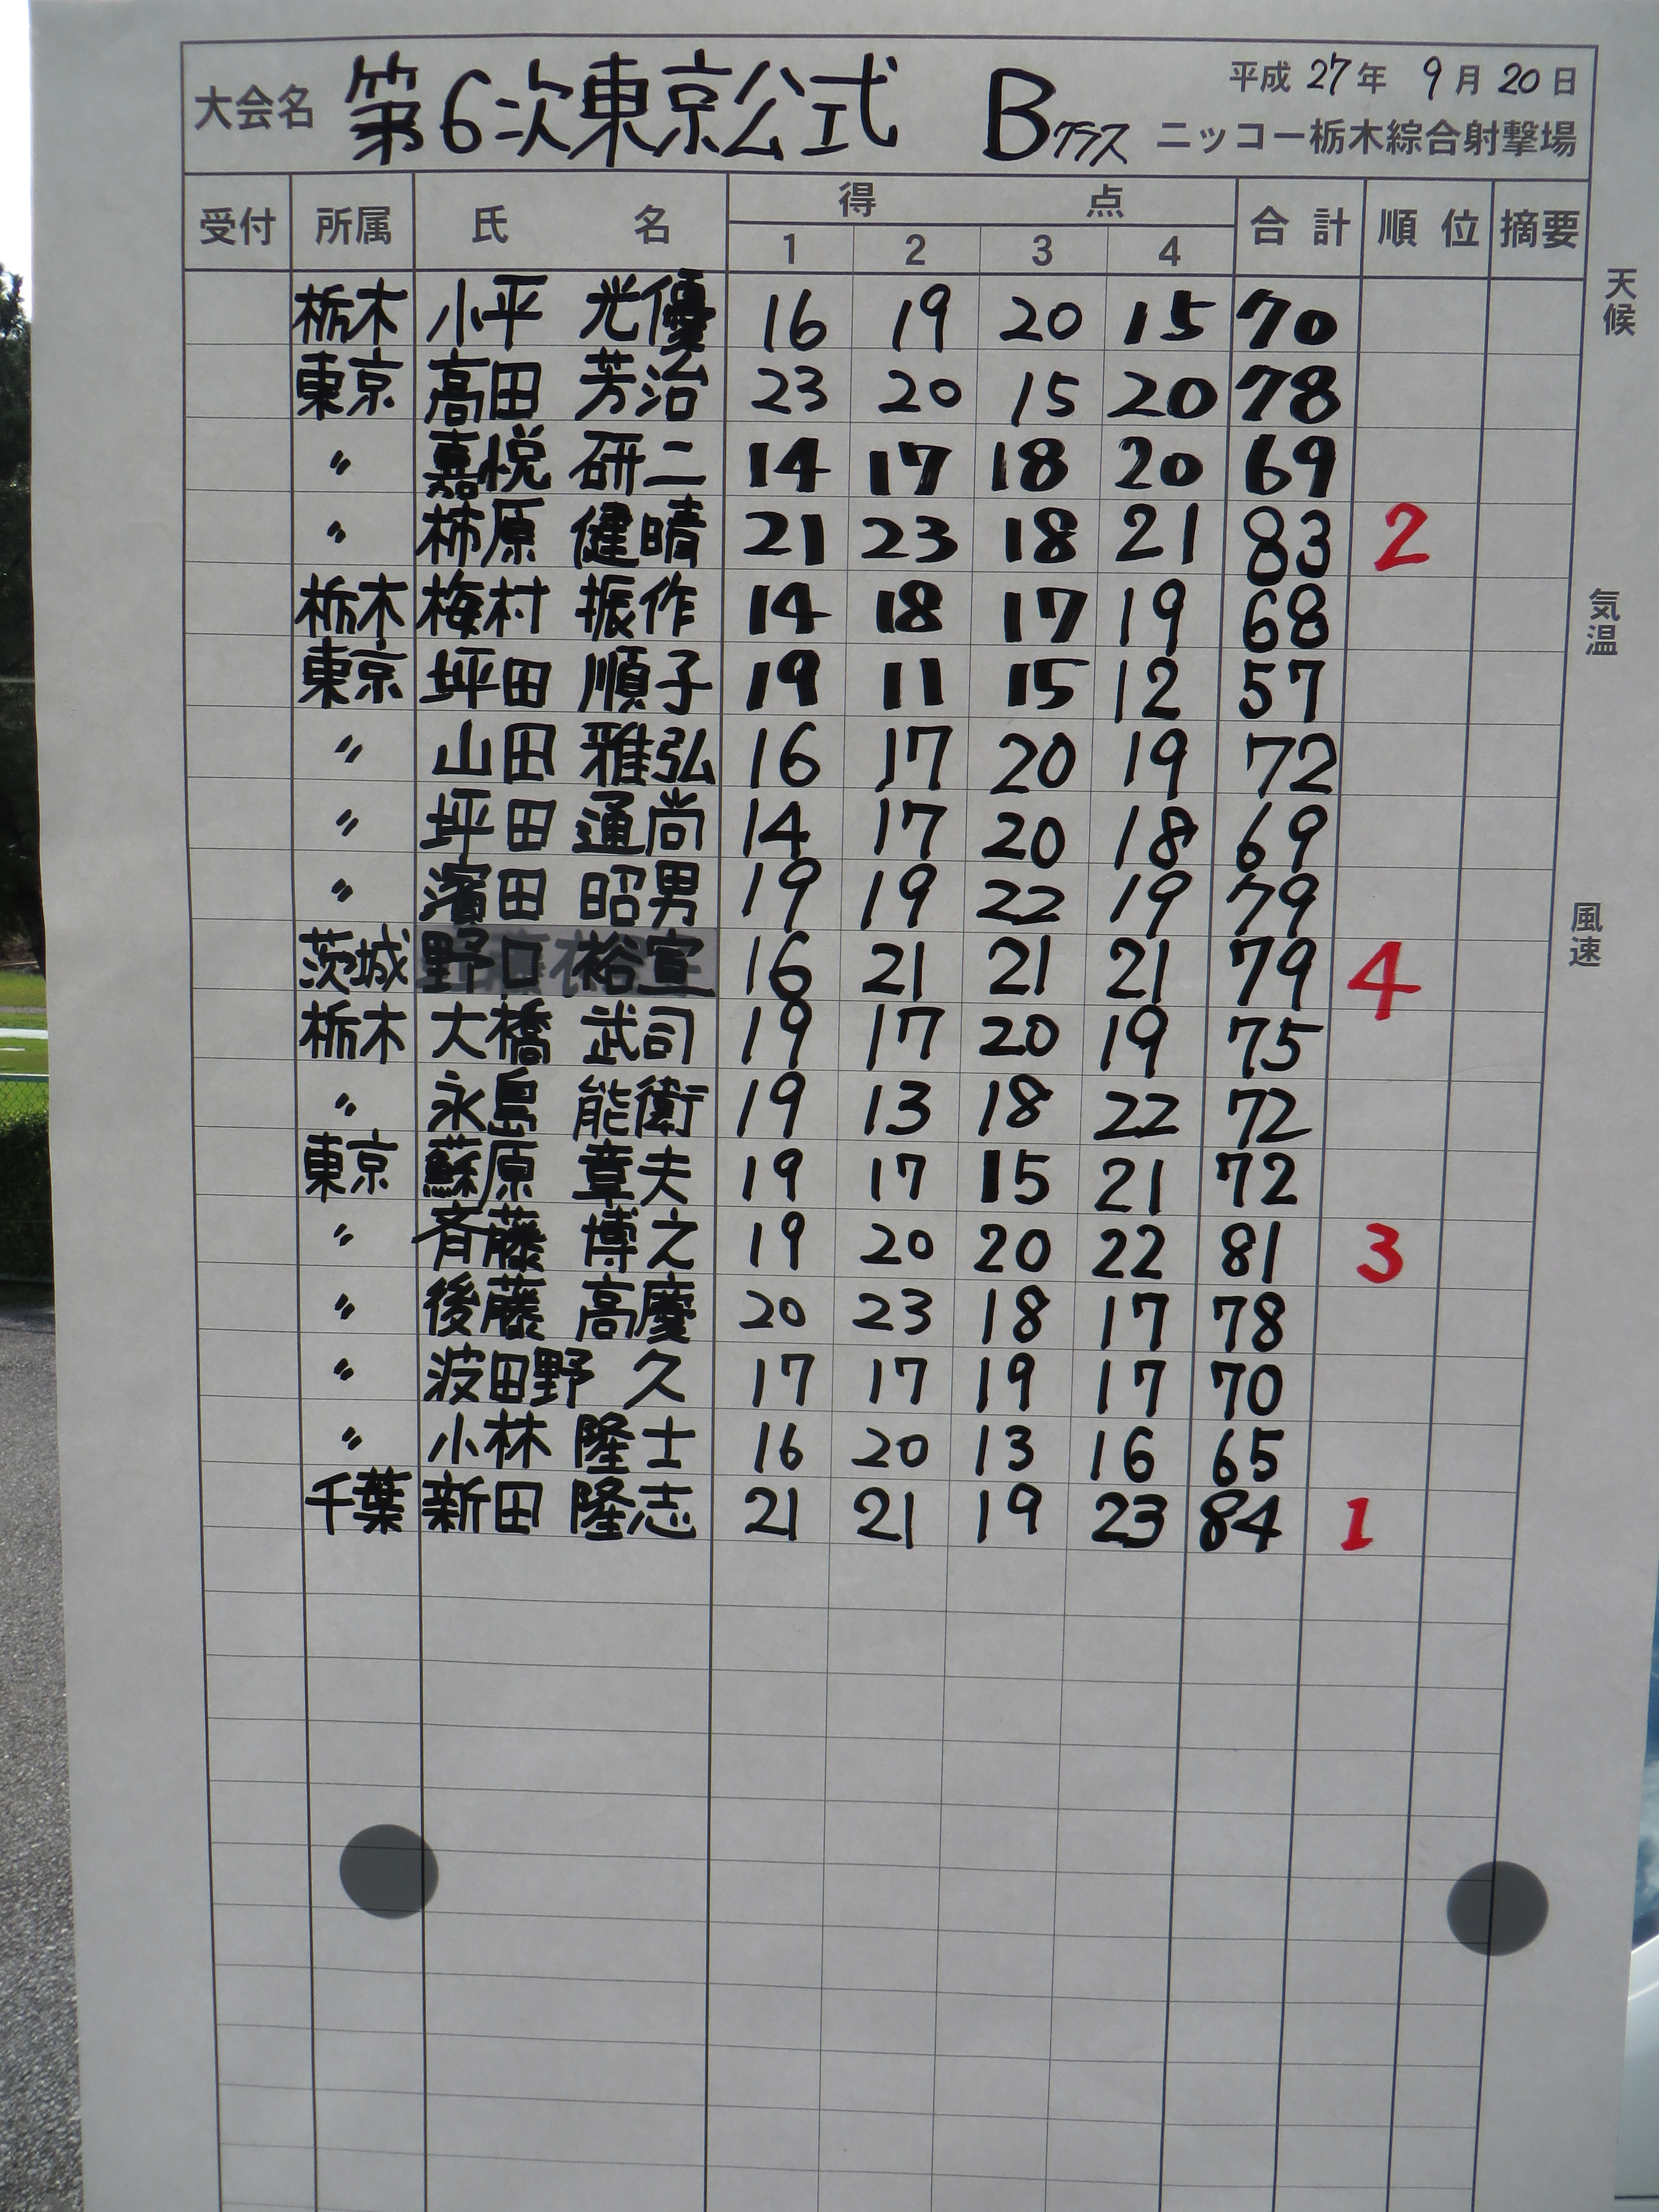 大会名 第6次東京公式 Bクラス 平成27年 9月20日
ニッコー栃木綜合射撃場
受付 所属 氏 名 得 点 合計 順位 摘要
1 2 3 4
栃木 小平 光優 16 19 20 15 70
東京 高田 芳治 23 20 15 20 78
〃 嘉悦 研二 14 17 18 20 69
〃 柿原 健晴 21 23 18 21 83 2
栃木 梅村 振作 14 18 17 19 68
東京 坪田 順子 19 11 15 12 57
〃 山田 雅弘 16 17 20 19 72
〃 坪田 通尚 14 17 20 18 69
〃 濱田 昭男 19 19 22 19 79
茨城 野口 裕宣 16 21 21 21 79 4
栃木 大橋 武司 19 17 20 19 75
〃 永島 能衛 19 13 18 22 72
東京 蘇原 章夫 19 17 15 21 72
〃 斉藤 博之 19 20 20 22 81 3
〃 後藤 高慶 20 23 18 17 78
〃 波田野 久 17 17 19 17 70
〃 小林 隆士 16 20 13 16 65
千葉 新田 隆志 21 21 19 23 84 1
天候
気温
風速